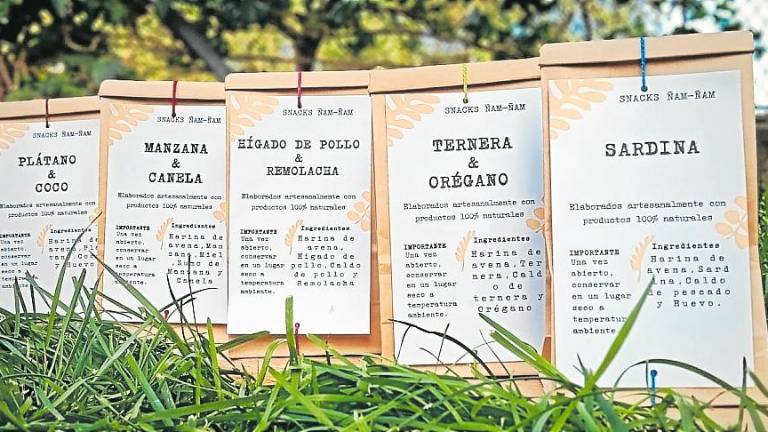 SNACKS ÑAM-ÑAM
PLÁTANO
&
COCO
Elaborados artesanalmente con
productos 100% naturales
IMPORTANTE
Una vez
abierto,
conservar
en un lugar
seco a
temperatura
ambiente.
Ingredientes
Harina de
SNACKS ÑAM-ÑAM
MANZANA
&
CANELA
Elaborados artesanalmente con
productos 100% naturales
IMPORTANTE
Una vez
abierto,
conservar
en un lugar
seco a
temperatura
ambiente.
Ingredientes
Harina de
avena, Man
zana, Miel
, Zumo de
Manzana y
Canela
SNACKS ÑAM-ÑAM
HÍGADO DE POLLO
&
REMOLACHA
Elaborados artesanalmente con
productos 100% naturales
IMPORTANTE
Una vez
abierto,
conservar
en un lugar
seco a
temperatura
ambiente.
Ingredientes
Harina de
avena,
Hígado de
pollo, Caldo
de pollo y
Remolacha
SNACKS ÑAM-ÑAM
TERNERA
&
ORÉGANO
Elaborados artesanalmente con
productos 100% naturales
IMPORTANTE
Una vez
abierto,
conservar
en un lugar
seco a
temperatura
ambiente.
Ingredientes
Harina de
avena, Ter
nera, Cald
o de
ternera y
Orégano
SNACKS ÑAM-ÑAM
SARDINA
Elaborados artesanalmente con
productos 100% naturales
IMPORTANTE
Una vez
abierto,
conservar
en un lugar
seco a
temperatura
ambiente
Ingredientes
Harina de
avena, Sard
ina, Caldo
de pescado
y Huevo.